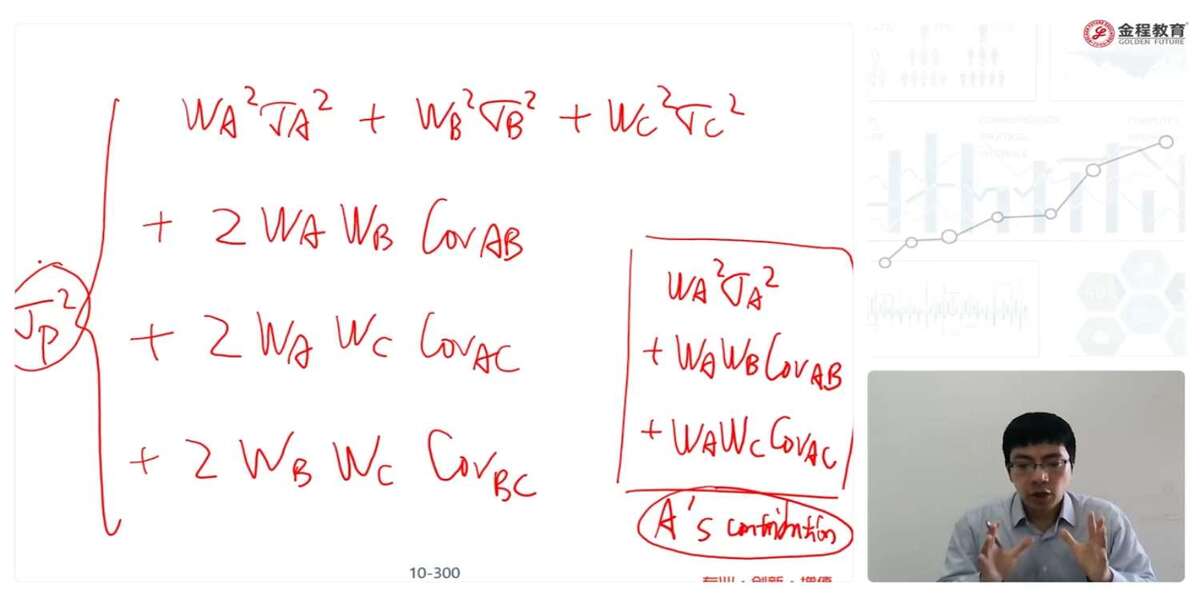 金程教育
GOLDEN FUTURE
σP²
WA²σA² + WB²σB² + WC²σC²
+ 2 WA WB CovAB
+ 2 WA WC CovAC
+ 2 WB WC CovBC
WA²σA²
+ WAWB CovAB
+ WAWC CovAC
A's contribution
10-300
专业·创新·增值